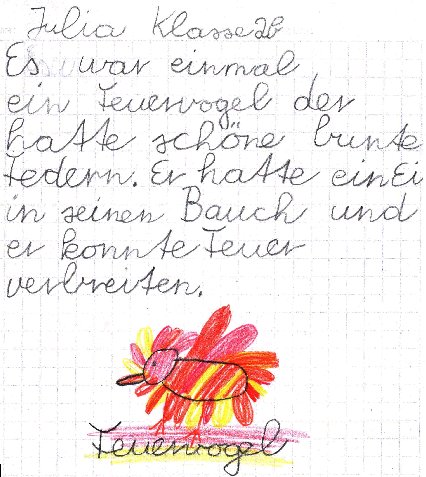 Julia Klasse 2b
Es war einmal
ein Feuervogel der
hatte schöne bunte
Federn. Er hatte ein Ei
in seinen Bauch und
er konnte Feuer
verbreiten.
Feuervogel